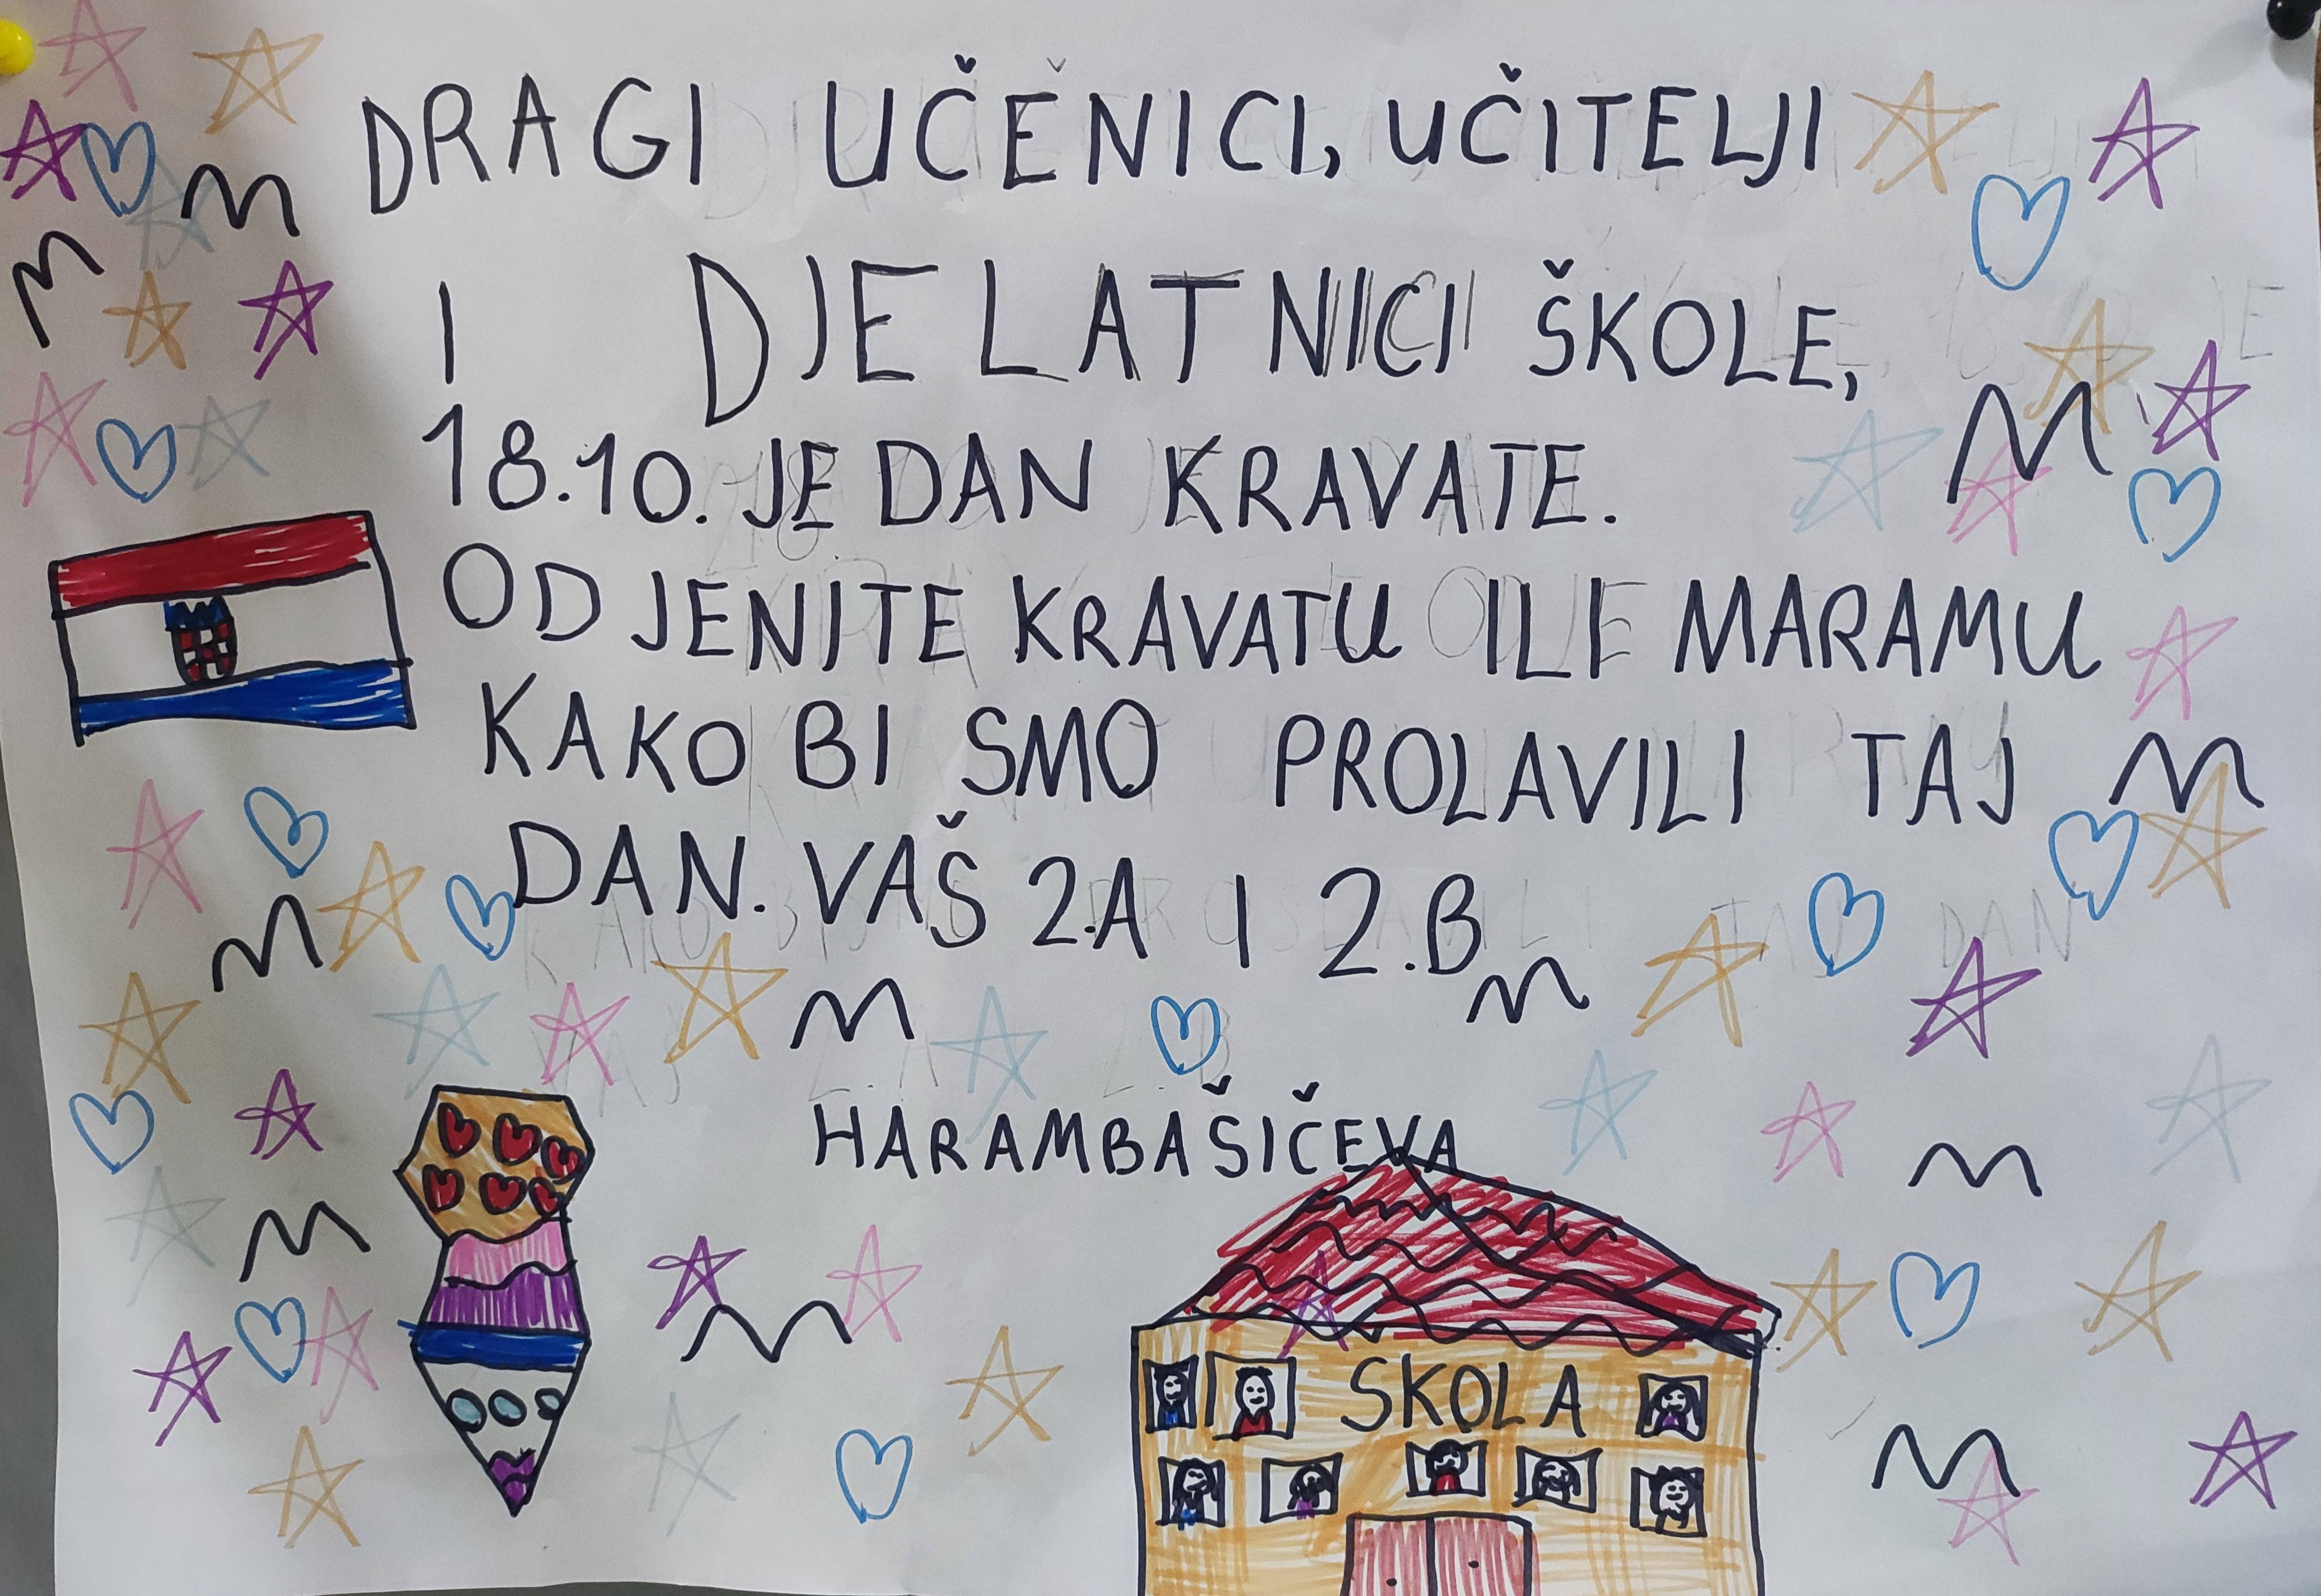 DRAGI UČENICI, UČITELJI
I DJELATNICI ŠKOLE,
18.10. JE DAN KRAVATE.
ODJENITE KRAVATU ILI MARAMU
KAKO BI SMO PROLAVILI TAJ
DAN. VAŠ 2.A I 2.B
HARAMBAŠIČEVA
SKOLA